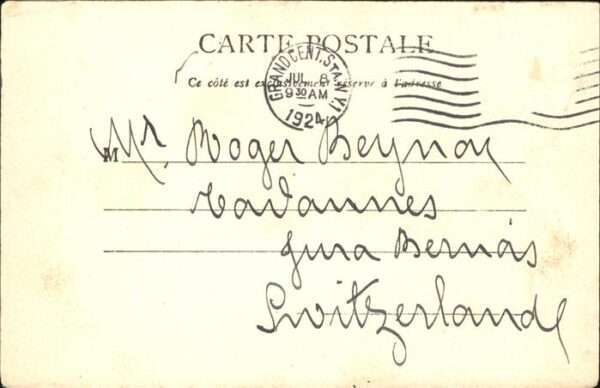 CARTE POSTALE
Ce côté est exclusivement réservé à l'adresse
GRAND CENT. STA. N.Y.
JUL 8
9 30 AM
1924
Mr. Roger
Tavannes
Jura Bernois
Switzerland